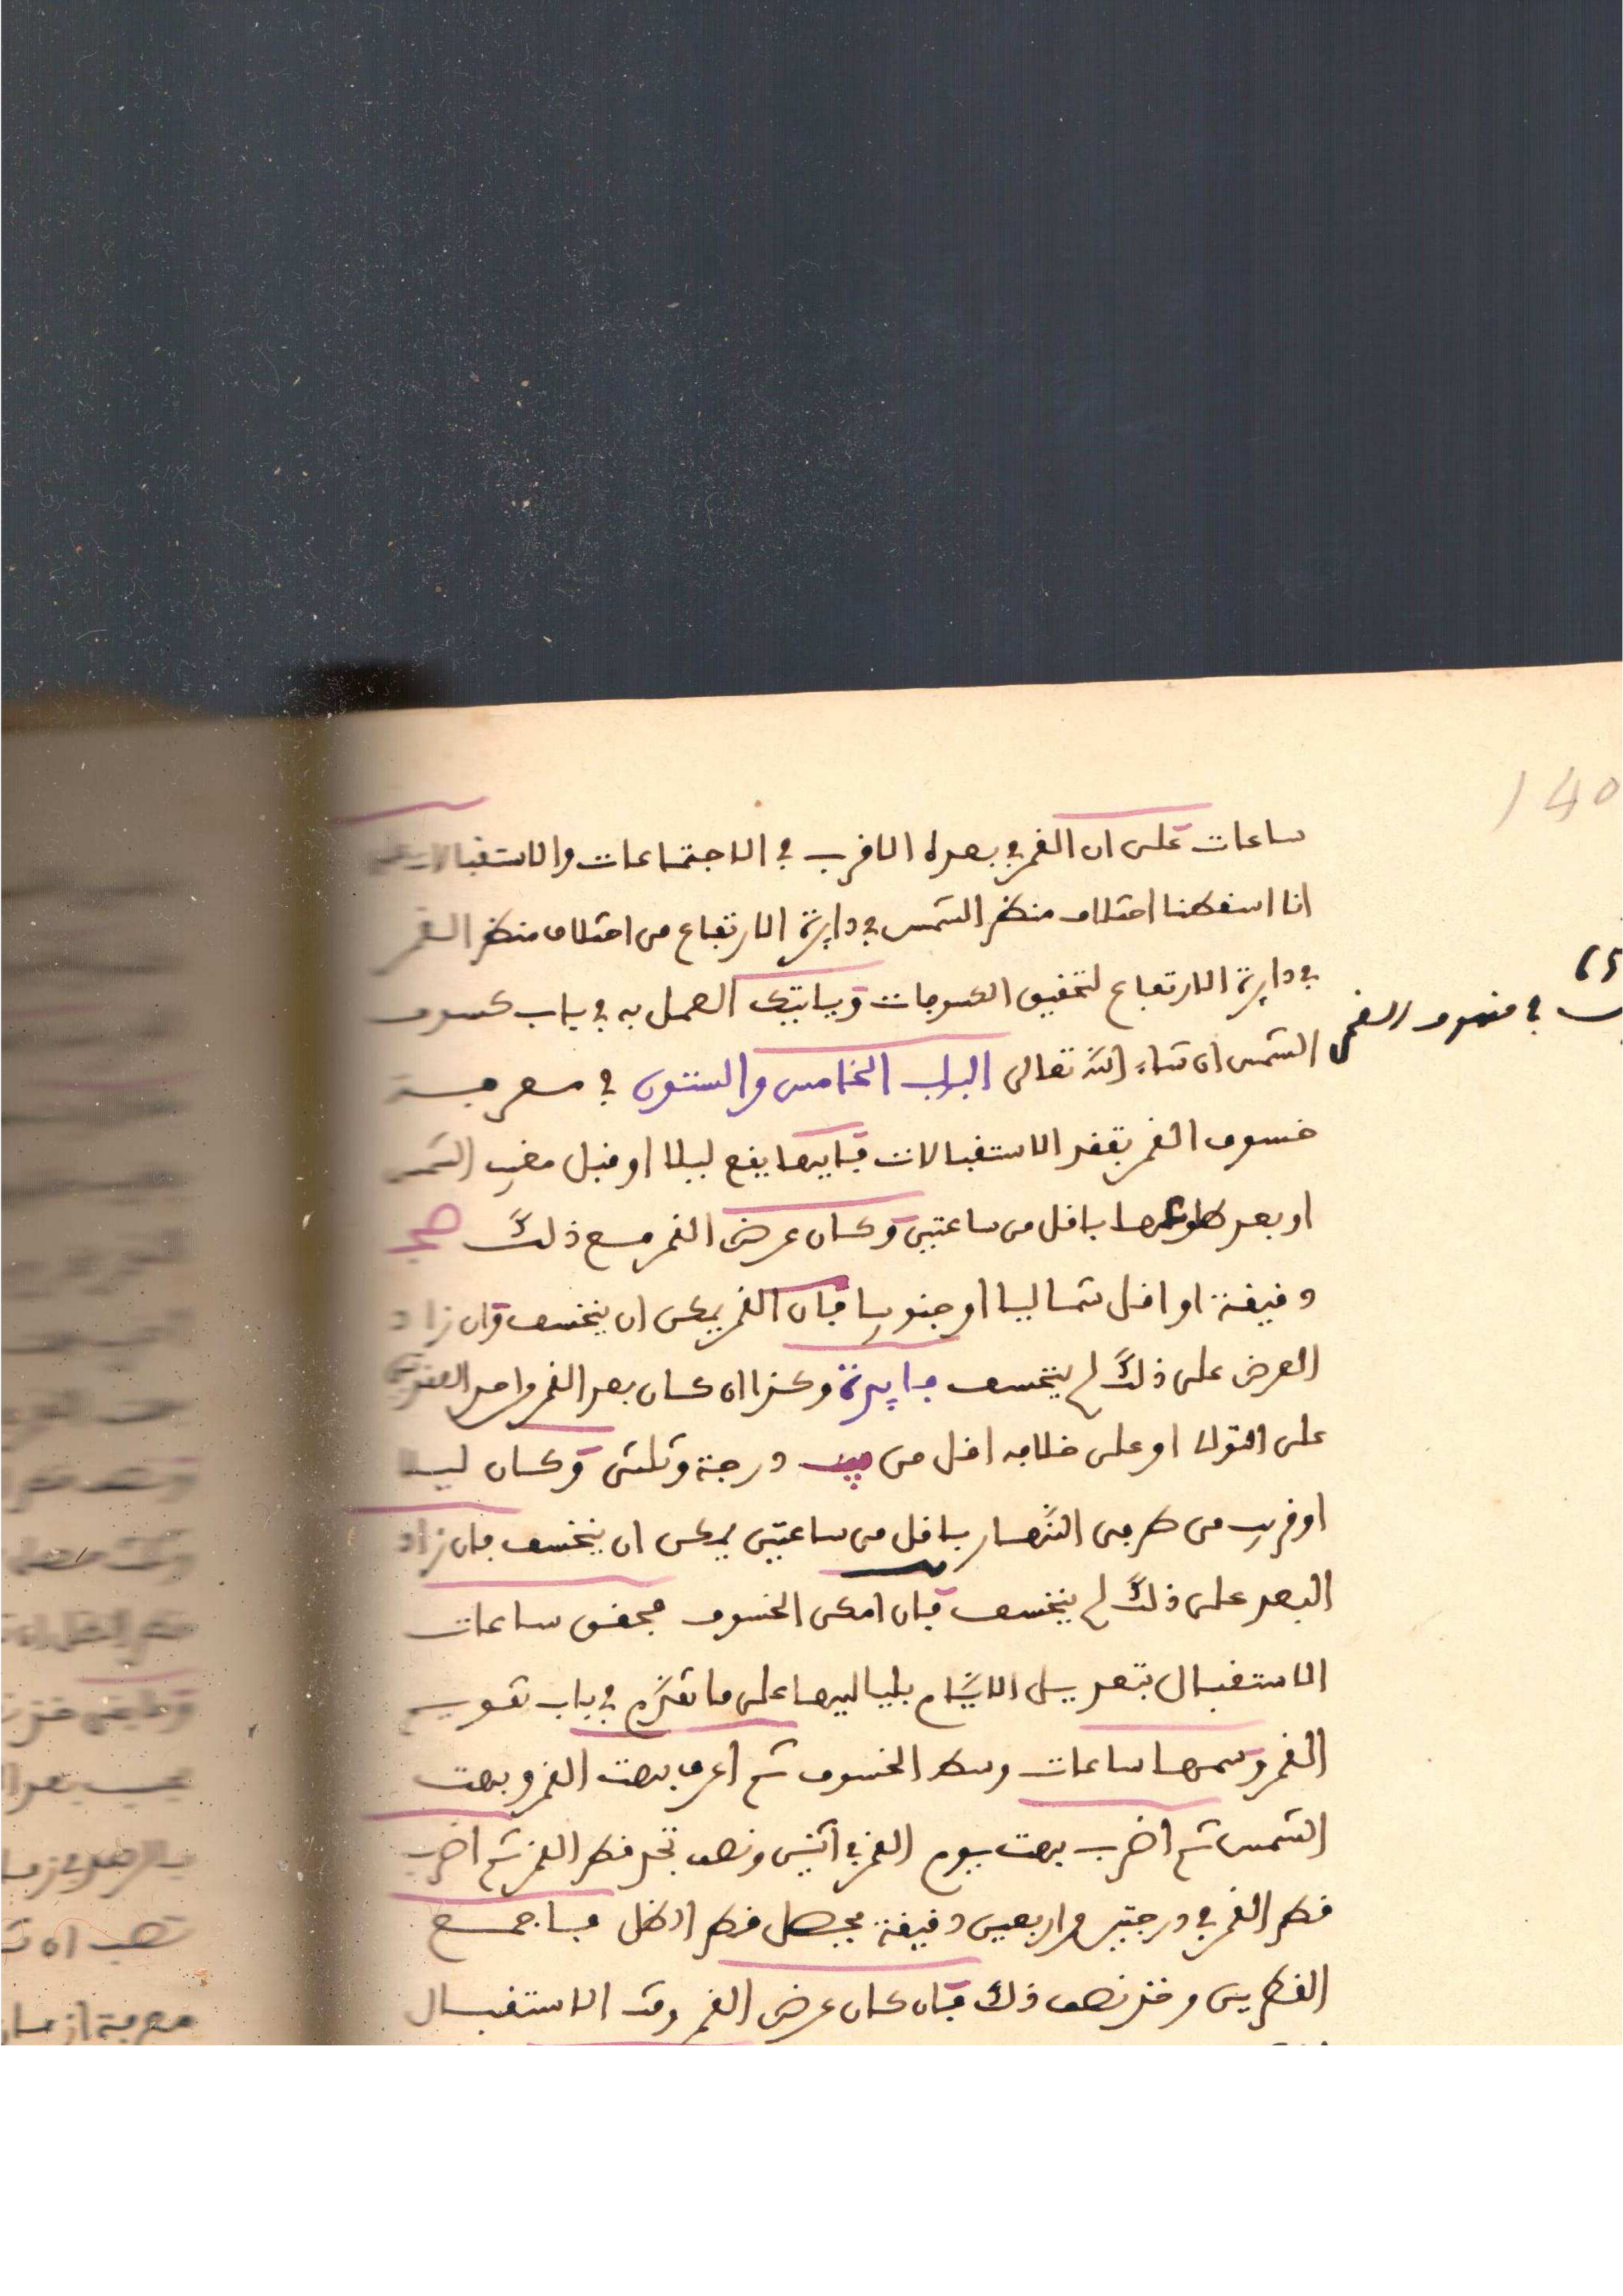 140
ساعات على ان القمر في بعده الاقرب في الاجتماعات والاستقبالات
انا اسقطنا اختلاف منظر الشمس في دايرة الارتفاع من اختلاف منظر القمر
في دايرة الارتفاع لتحقيق الكسوفات وياتيك العمل به في باب كسوف
في خسوف القمر
الشمس ان شاء الله تعالى الباب الخامس والستون في معرفة
خسوف القمر تفقد الاستقبالات فايها يقع ليلا او قبل مغيب الشمس
او بعد طلوعها باقل من ساعتين وكان عرض القمر مع ذلك
دقيقة او اقل شماليا او جنوبيا فان القمر يمكن ان ينخسف وان زاد
العرض على ذلك لم ينخسف فايدة وكذا ان كان بعد القمر واحد العقدتين
على التوالى او على خلافه اقل من يب درجة وثلثى وكان ليلا
او قريب من طرفى النهار باقل من ساعتين يمكن ان ينخسف فان زاد
البعد على ذلك لم ينخسف فان امكن الخسوف فحقق ساعات
الاستقبال بتعديل الايام بلياليها على ما تقدم في باب تقويم
القمر وسمها ساعات وسط الخسوف ثم اعرف بهت القمر وبهت
الشمس ثم اضرب بهت يوم القمر في اثنين ونصف تجد قطر القمر ثم اضرب
قطر القمر في درجتين واربعين دقيقة يحصل قطر الظل فاجمع
القطرين وخذ نصف ذلك فان كان عرض القمر وقت الاستقبال